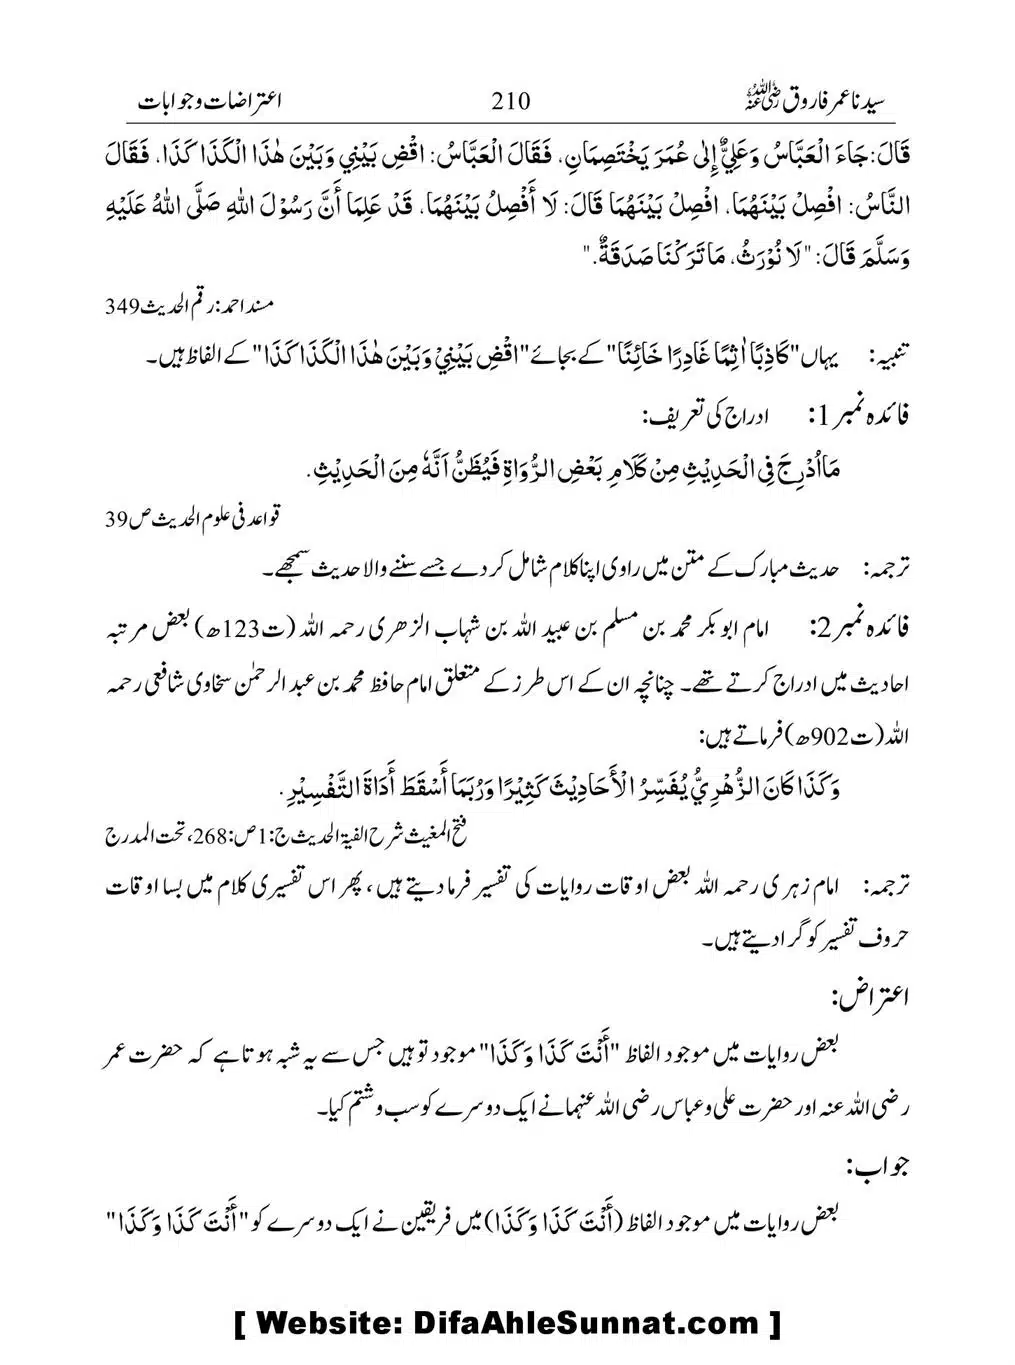 سیدنا عمر فاروق رضی اللہ عنہ 210 اعتراضات و جوابات
قَالَ: جَاءَ الْعَبَّاسُ وَعَلِيٌّ إِلٰى عُمَرَ يَخْتَصِمَانِ، فَقَالَ الْعَبَّاسُ: اقْضِ بَيْنِي وَبَيْنَ هٰذَا الْكَذَا كَذَا، فَقَالَ
النَّاسُ: افْصِلْ بَيْنَهُمَا، افْصِلْ بَيْنَهُمَا قَالَ: لَا أَفْصِلُ بَيْنَهُمَا، قَدْ عَلِمَا أَنَّ رَسُوْلَ اللهِ صَلَّى اللهُ عَلَيْهِ
وَسَلَّمَ قَالَ: "لَا نُوْرَثُ، مَا تَرَكْنَا صَدَقَةٌ."
مسند احمد: رقم الحدیث 349
تنبیہ: یہاں "كَاذِبًا اٰثِمًا غَادِرًا خَائِنًا" کے بجائے "اقْضِ بَيْنِيْ وَبَيْنَ هٰذَا الْكَذَا كَذَا" کے الفاظ ہیں۔
فائدہ نمبر 1: ادراج کی تعریف:
مَا اُدْرِجَ فِي الْحَدِيْثِ مِنْ كَلَامِ بَعْضِ الرُّوَاةِ فَيُظَنُّ اَنَّهٗ مِنَ الْحَدِيْثِ.
قواعد فی علوم الحدیث ص 39
ترجمہ: حدیث مبارک کے متن میں راوی اپنا کلام شامل کر دے جسے سننے والا حدیث سمجھے۔
فائدہ نمبر 2: امام ابو بکر محمد بن مسلم بن عبید اللہ بن شہاب الزھری رحمہ اللہ (ت123ھ) بعض مرتبہ
احادیث میں ادراج کرتے تھے۔ چنانچہ ان کے اس طرز کے متعلق امام حافظ محمد بن عبد الرحمٰن سخاوی شافعی رحمہ
اللہ (ت902ھ) فرماتے ہیں:
وَكَذَا كَانَ الزُّهْرِيُّ يُفَسِّرُ الْأَحَادِيْثَ كَثِيْرًا وَرُبَمَا أَسْقَطَ أَدَاةَ التَّفْسِيْرِ.
فتح المغیث شرح الفیۃ الحدیث ج:1 ص:268، تحت المدرج
ترجمہ: امام زہری رحمہ اللہ بعض اوقات روایات کی تفسیر فرما دیتے ہیں، پھر اس تفسیری کلام میں بسا اوقات
حروف تفسیر کو گرا دیتے ہیں۔
اعتراض:
بعض روایات میں موجود الفاظ "أَنْتَ كَذَا وَكَذَا" موجود تو ہیں جس سے یہ شبہ ہوتا ہے کہ حضرت عمر
رضی اللہ عنہ اور حضرت علی و عباس رضی اللہ عنہما نے ایک دوسرے کو سب و شتم کیا۔
جواب:
بعض روایات میں موجود الفاظ (أَنْتَ كَذَا وَكَذَا) میں فریقین نے ایک دوسرے کو "أَنْتَ كَذَا وَكَذَا"
[ Website: DifaAhleSunnat.com ]